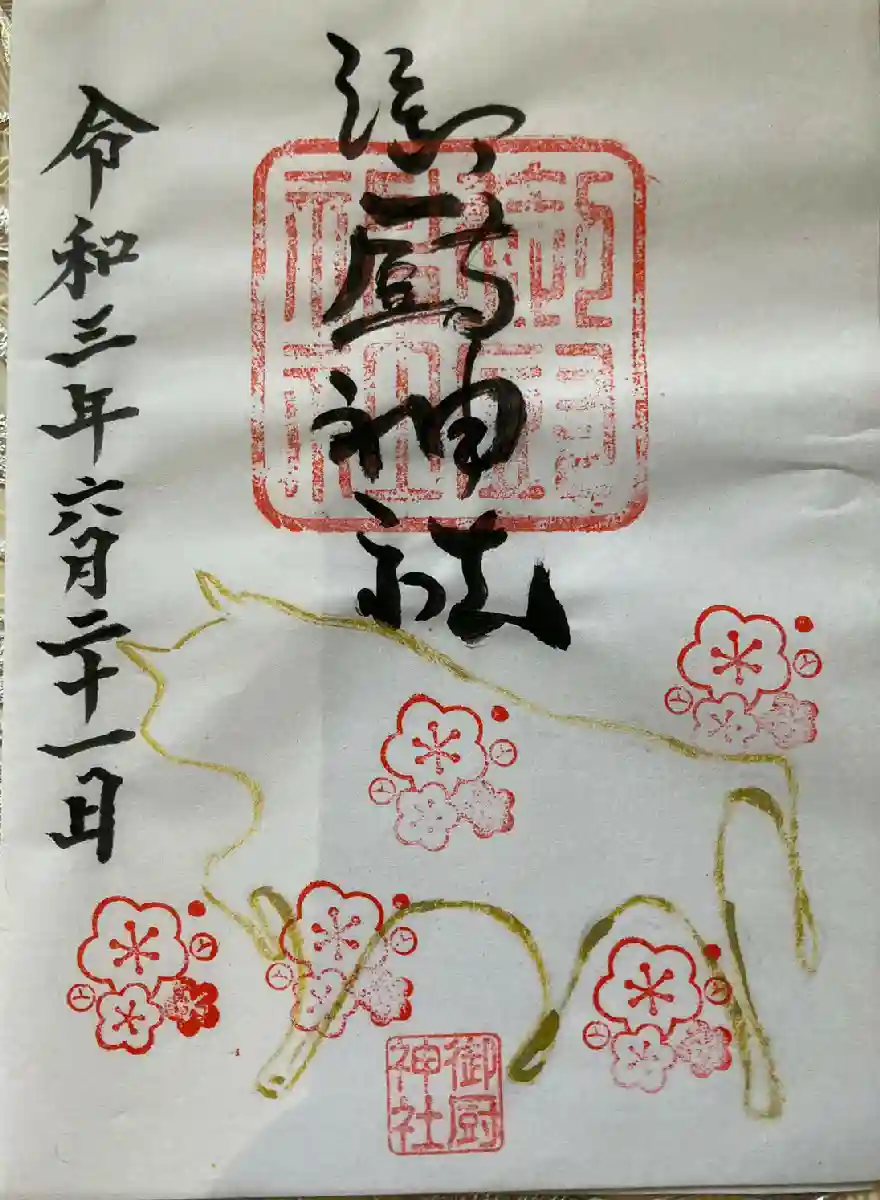 御厨神社
令和三年六月二十一日
御厨
神社